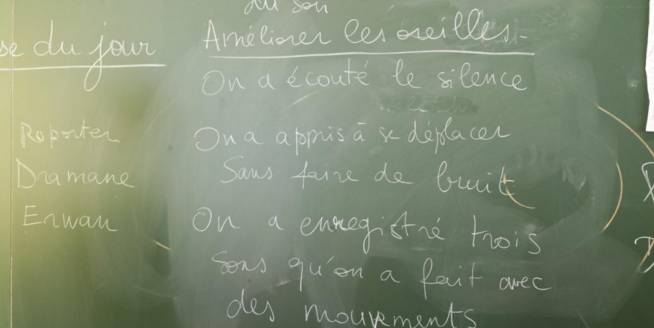 au son
se du jour
Améliorer les oreilles.
On a écouté le silence
Reporter
On a appris à se déplacer
Dramane
Sans faire de bruit
Erwan
On a enregistré trois
sons qu'on a fait avec
des mouvements